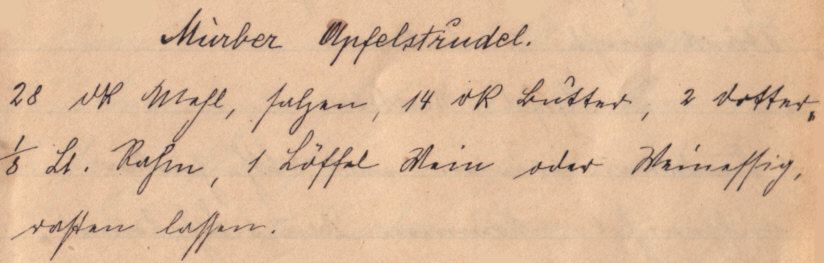 Mürber Apfelstrudel.
28 dk Mehl, salzen, 14 dk Butter, 2 Dotter,
1/8 Lt. Rahm, 1 Löffel Wein oder Weinessig,
rasten lassen.